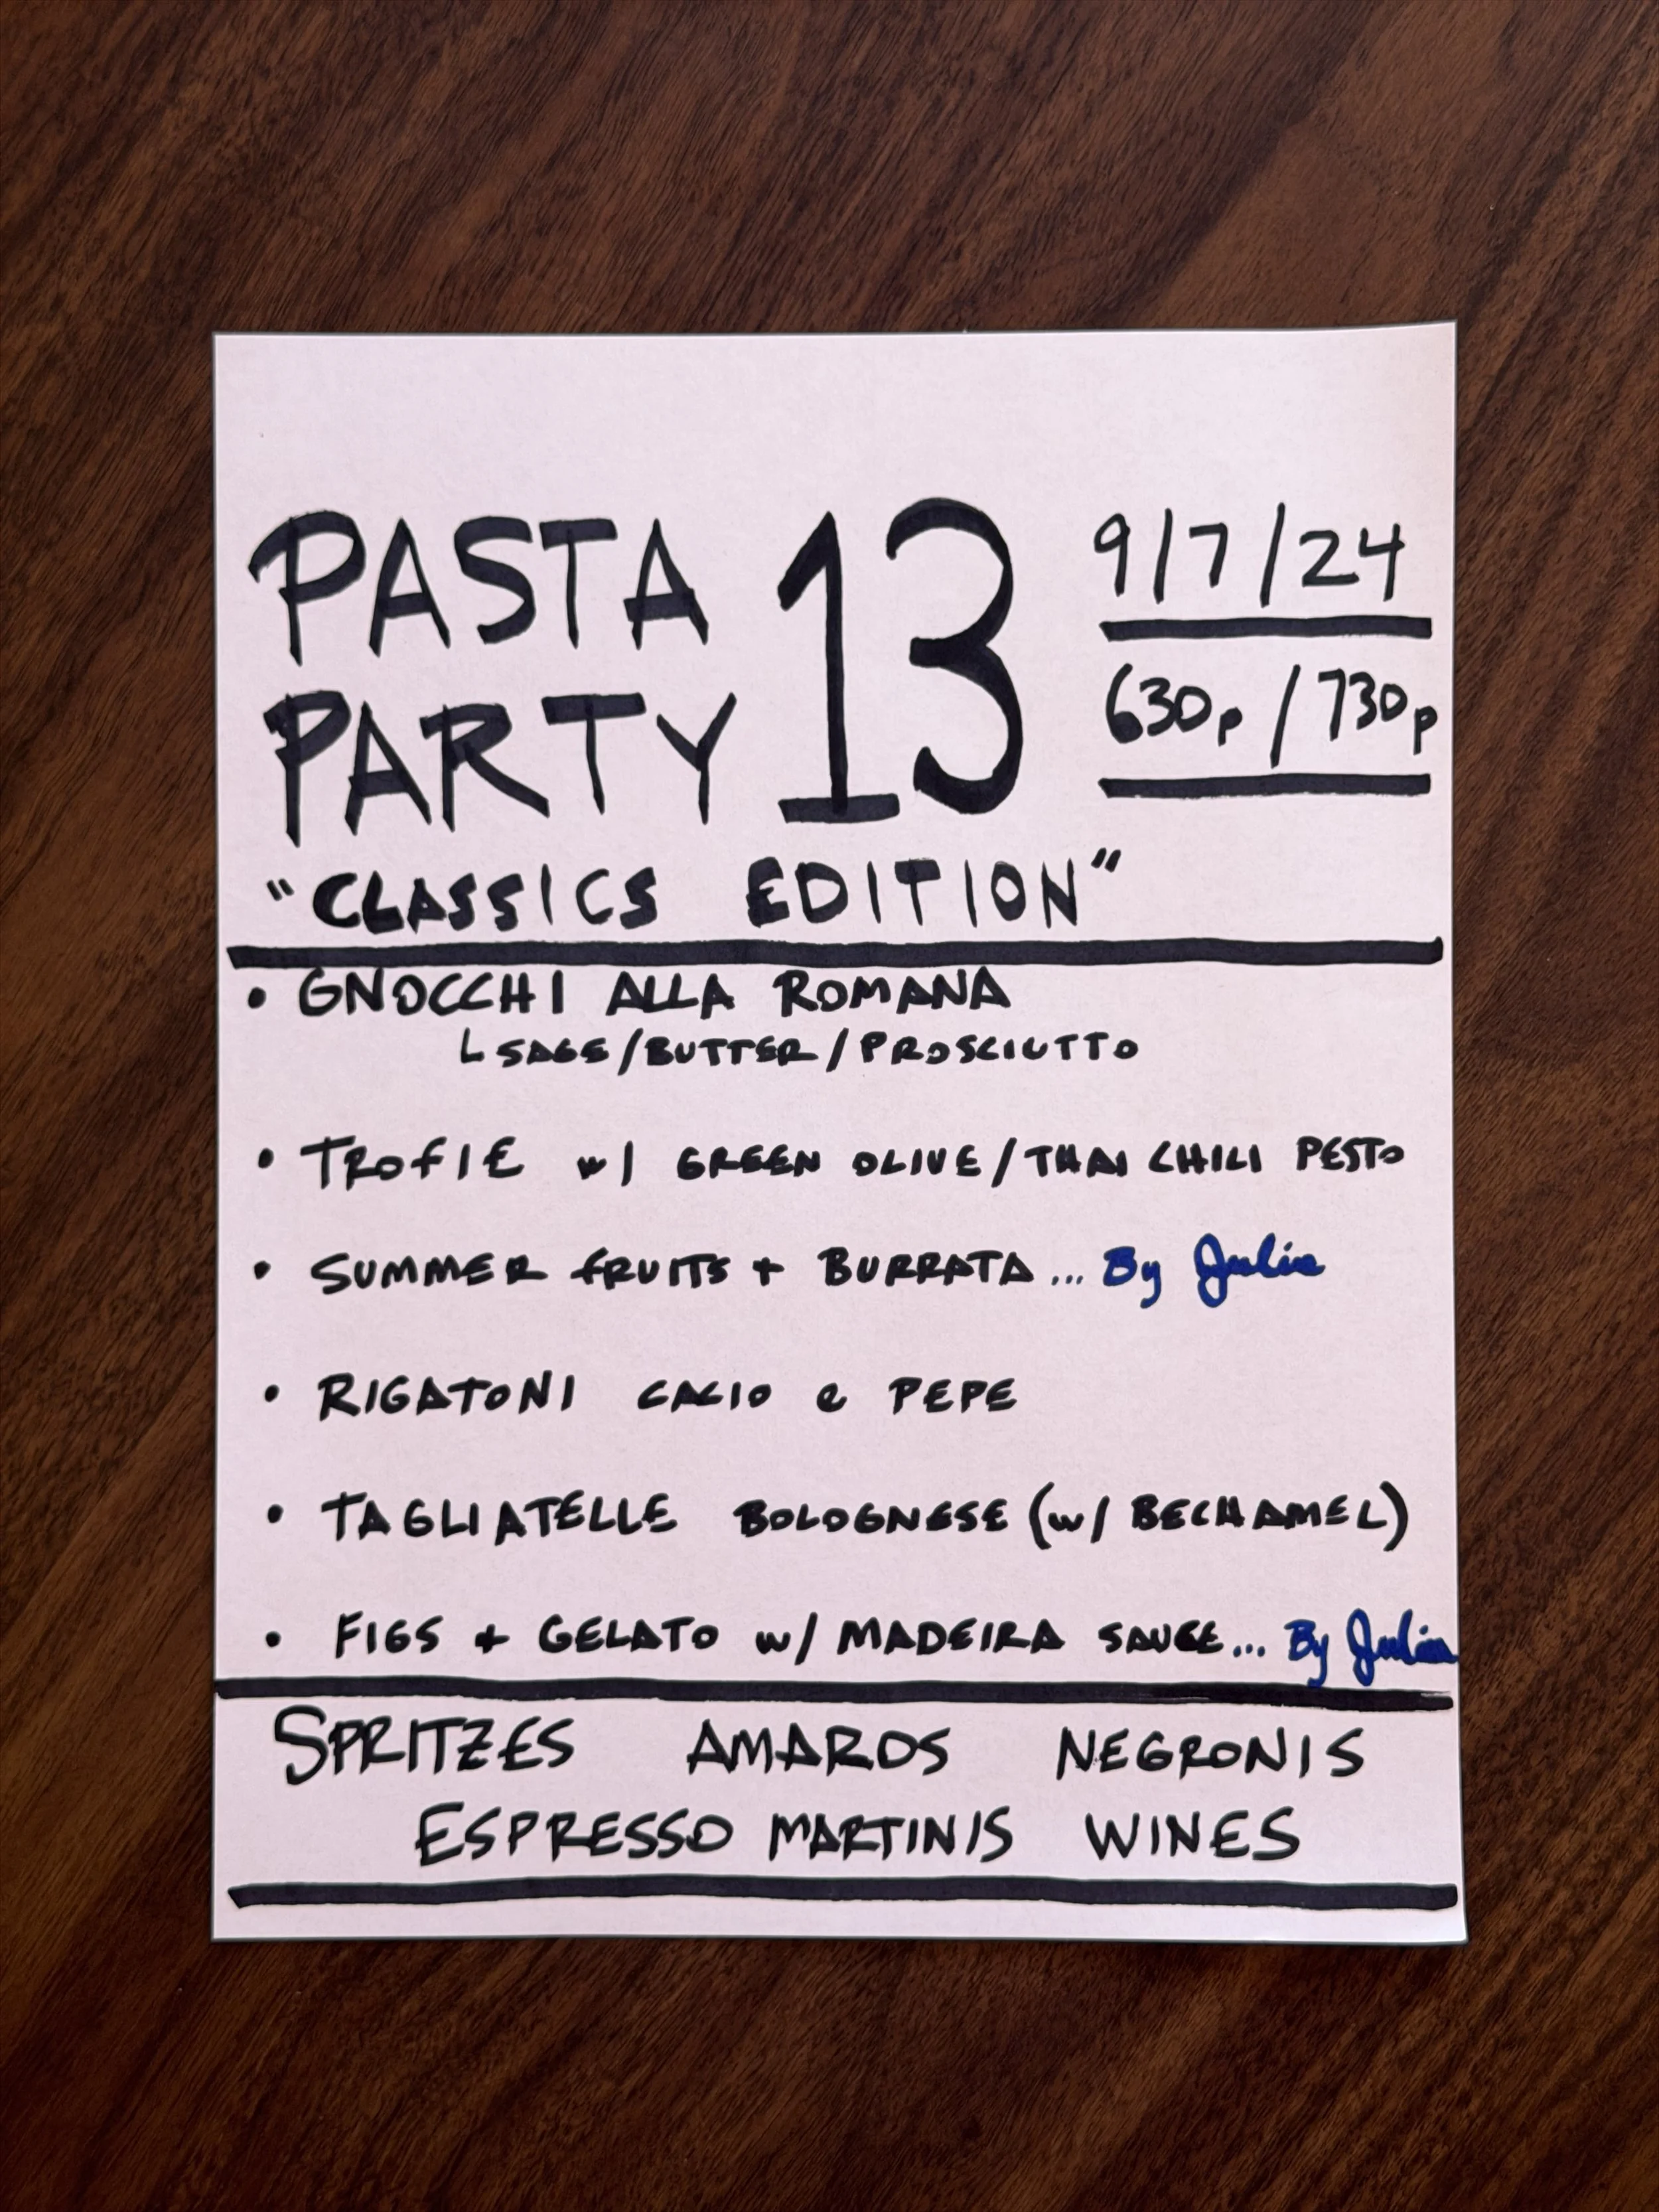 PASTA
PARTY 13
9/7/24
630p / 730p
"CLASSICS EDITION"
• GNOCCHI ALLA ROMANA
L SAGE/BUTTER/PROSCIUTTO
• TROFIE w/ GREEN OLIVE/THAI CHILI PESTO
• SUMMER FRUITS + BURRATA... By Julia
• RIGATONI CACIO e PEPE
• TAGLIATELLE BOLOGNESE (w/ BECHAMEL)
• FIGS + GELATO w/ MADEIRA SAUCE... By Julia
SPRITZES AMAROS NEGRONIS
ESPRESSO MARTINIS WINES